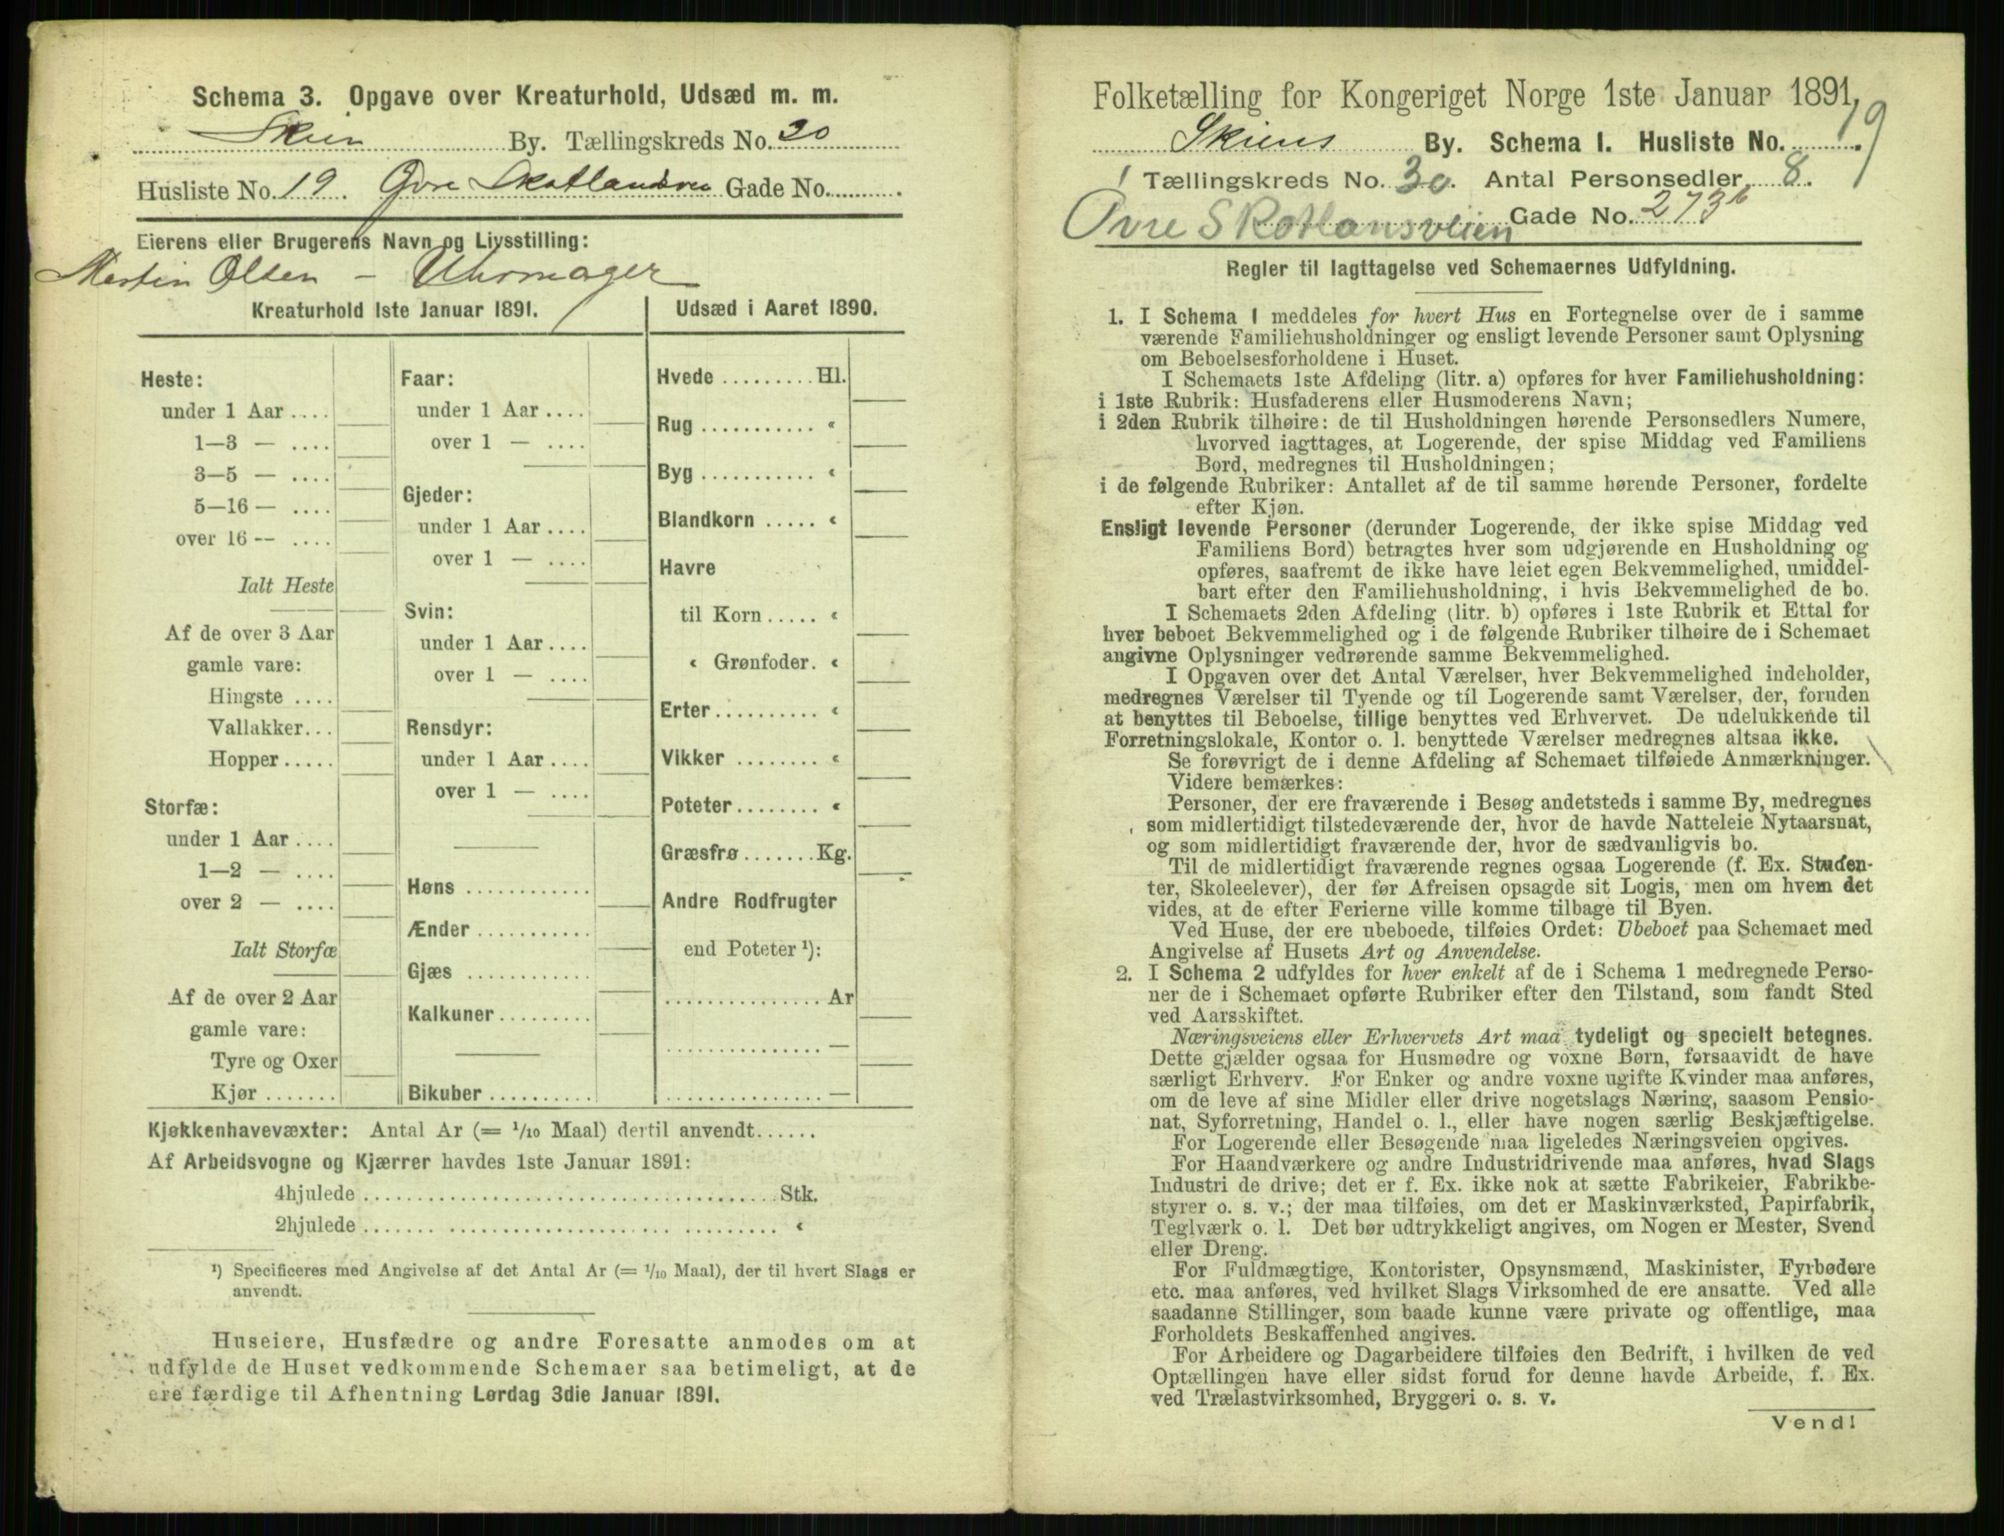 Schema 3. Opgave over Kreaturhold, Udsæd m. m.
Skien By. Tællingskreds No. 30
Husliste No. 19. Øvre Skotlandsvei Gade No.
Eierens eller Brugerens Navn og Livsstilling:
Martin Olsen – Uhrmager
Kreaturhold 1ste Januar 1891.
Heste:
under 1 Aar ....
1—3 — ....
3—5 — ....
5—16 — ....
over 16 — ....
Ialt Heste
Af de over 3 Aar
gamle vare:
Hingste ....
Vallakker...
Hopper.....
Storfæ:
under 1 Aar ....
1—2 — ....
over 2 — ....
Ialt Storfæ
Af de over 2 Aar
gamle vare:
Tyre og Oxer
Kjør .......
Faar:
under 1 Aar ....
over 1 — ....
Gjeder:
under 1 Aar ....
over 1 — ....
Svin:
under 1 Aar ....
over 1 — ....
Rensdyr:
under 1 Aar ....
over 1 — ....
Høns ...........
Ænder ...........
Gjæs ...........
Kalkuner.........
Bikuber ..........
Udsæd i Aaret 1890.
Hvede ......... Hl.
Rug ........... «
Byg ........... «
Blandkorn ..... «
Havre
til Korn ..... «
« Grønfoder. «
Erter.......... «
Vikker ........ «
Poteter........ «
Græsfrø....... Kg.
Andre Rodfrugter
end Poteter ¹):
............... Ar
............... —
............... —
Kjøkkenhavevæxter: Antal Ar (= 1/10 Maal) dertil anvendt......
Af Arbeidsvogne og Kjærrer havdes 1ste Januar 1891:
4hjulede ........................................ Stk.
2hjulede ........................................ «
¹) Specificeres med Angivelse af det Antal Ar (= 1/10 Maal), der til hvert Slags er
anvendt.
Huseiere, Husfædre og andre Foresatte anmodes om at
udfylde de Huset vedkommende Schemaer saa betimeligt, at de
ere færdige til Afhentning Lørdag 3die Januar 1891.
Folketælling for Kongeriget Norge 1ste Januar 1891.
Skiens By. Schema I. Husliste No. 19
Tællingskreds No. 30. Antal Personsedler 8.
Øvre Skotlansveien Gade No. 273b
Regler til Iagttagelse ved Schemaernes Udfyldning.
1. I Schema 1 meddeles for hvert Hus en Fortegnelse over de i samme
værende Familiehusholdninger og ensligt levende Personer samt Oplysning
om Beboelsesforholdene i Huset.
I Schemaets 1ste Afdeling (litr. a) opføres for hver Familiehusholdning:
i 1ste Rubrik: Husfaderens eller Husmoderens Navn;
i 2den Rubrik tilhøire: de til Husholdningen hørende Personsedlers Numere,
hvorved iagttages, at Logerende, der spise Middag ved Familiens
Bord, medregnes til Husholdningen;
i de følgende Rubriker: Antallet af de til samme hørende Personer, fordelte
efter Kjøn.
Ensligt levende Personer (derunder Logerende, der ikke spise Middag ved
Familiens Bord) betragtes hver som udgjørende en Husholdning og
opføres, saafremt de ikke have leiet egen Bekvemmelighed, umiddel-
bart efter den Familiehusholdning, i hvis Bekvemmelighed de bo.
I Schemaets 2den Afdeling (litr. b) opføres i 1ste Rubrik et Ettal for
hver beboet Bekvemmelighed og i de følgende Rubriker tilhøire de i Schemaet
angivne Oplysninger vedrørende samme Bekvemmelighed.
I Opgaven over det Antal Værelser, hver Bekvemmelighed indeholder,
medregnes Værelser til Tyende og til Logerende samt Værelser, der, foruden
at benyttes til Beboelse, tillige benyttes ved Erhvervet. De udelukkende til
Forretningslokale, Kontor o. l. benyttede Værelser medregnes altsaa ikke.
Se forøvrigt de i denne Afdeling af Schemaet tilføiede Anmærkninger.
Videre bemærkes:
Personer, der ere fraværende i Besøg andetsteds i samme By, medregnes
som midlertidigt tilstedeværende der, hvor de havde Natteleie Nytaarsnat,
og som midlertidigt fraværende der, hvor de sædvanligvis bo.
Til de midlertidigt fraværende regnes ogsaa Logerende (f. Ex. Studen-
ter, Skoleelever), der før Afreisen opsagde sit Logis, men om hvem det
vides, at de efter Ferierne ville komme tilbage til Byen.
Ved Huse, der ere ubeboede, tilføies Ordet: Ubeboet paa Schemaet med
Angivelse af Husets Art og Anvendelse.
2. I Schema 2 udfyldes for hver enkelt af de i Schema 1 medregnede Perso-
ner de i Schemaet opførte Rubriker efter den Tilstand, som fandt Sted
ved Aarsskiftet.
Næringsveiens eller Erhvervets Art maa tydeligt og specielt betegnes.
Dette gjælder ogsaa for Husmødre og voxne Børn, forsaavidt de have
særligt Erhverv. For Enker og andre voxne ugifte Kvinder maa anføres,
om de leve af sine Midler eller drive nogetslags Næring, saasom Pensio-
nat, Syforretning, Handel o. l., eller have nogen særlig Beskjæftigelse.
For Logerende eller Besøgende maa ligeledes Næringsveien opgives.
For Haandværkere og andre Industridrivende maa anføres, hvad Slags
Industri de drive; det er f. Ex. ikke nok at sætte Fabrikeier, Fabrikbe-
styrer o. s. v.; der maa tilføies, om det er Maskinværksted, Papirfabrik,
Teglværk o. l. Det bør udtrykkeligt angives, om Nogen er Mester, Svend
eller Dreng.
For Fuldmægtige, Kontorister, Opsynsmænd, Maskinister, Fyrbødere
etc. maa anføres, ved hvilket Slags Virksomhed de ere ansatte. Ved alle
saadanne Stillinger, som baade kunne være private og offentlige, maa
Forholdets Beskaffenhed angives.
For Arbeidere og Dagarbeidere tilføies den Bedrift, i hvilken de ved
Optællingen have eller sidst forud for denne havde Arbeide, f. Ex.
ved Trælastvirksomhed, Bryggeri o. s. v.
Vend!